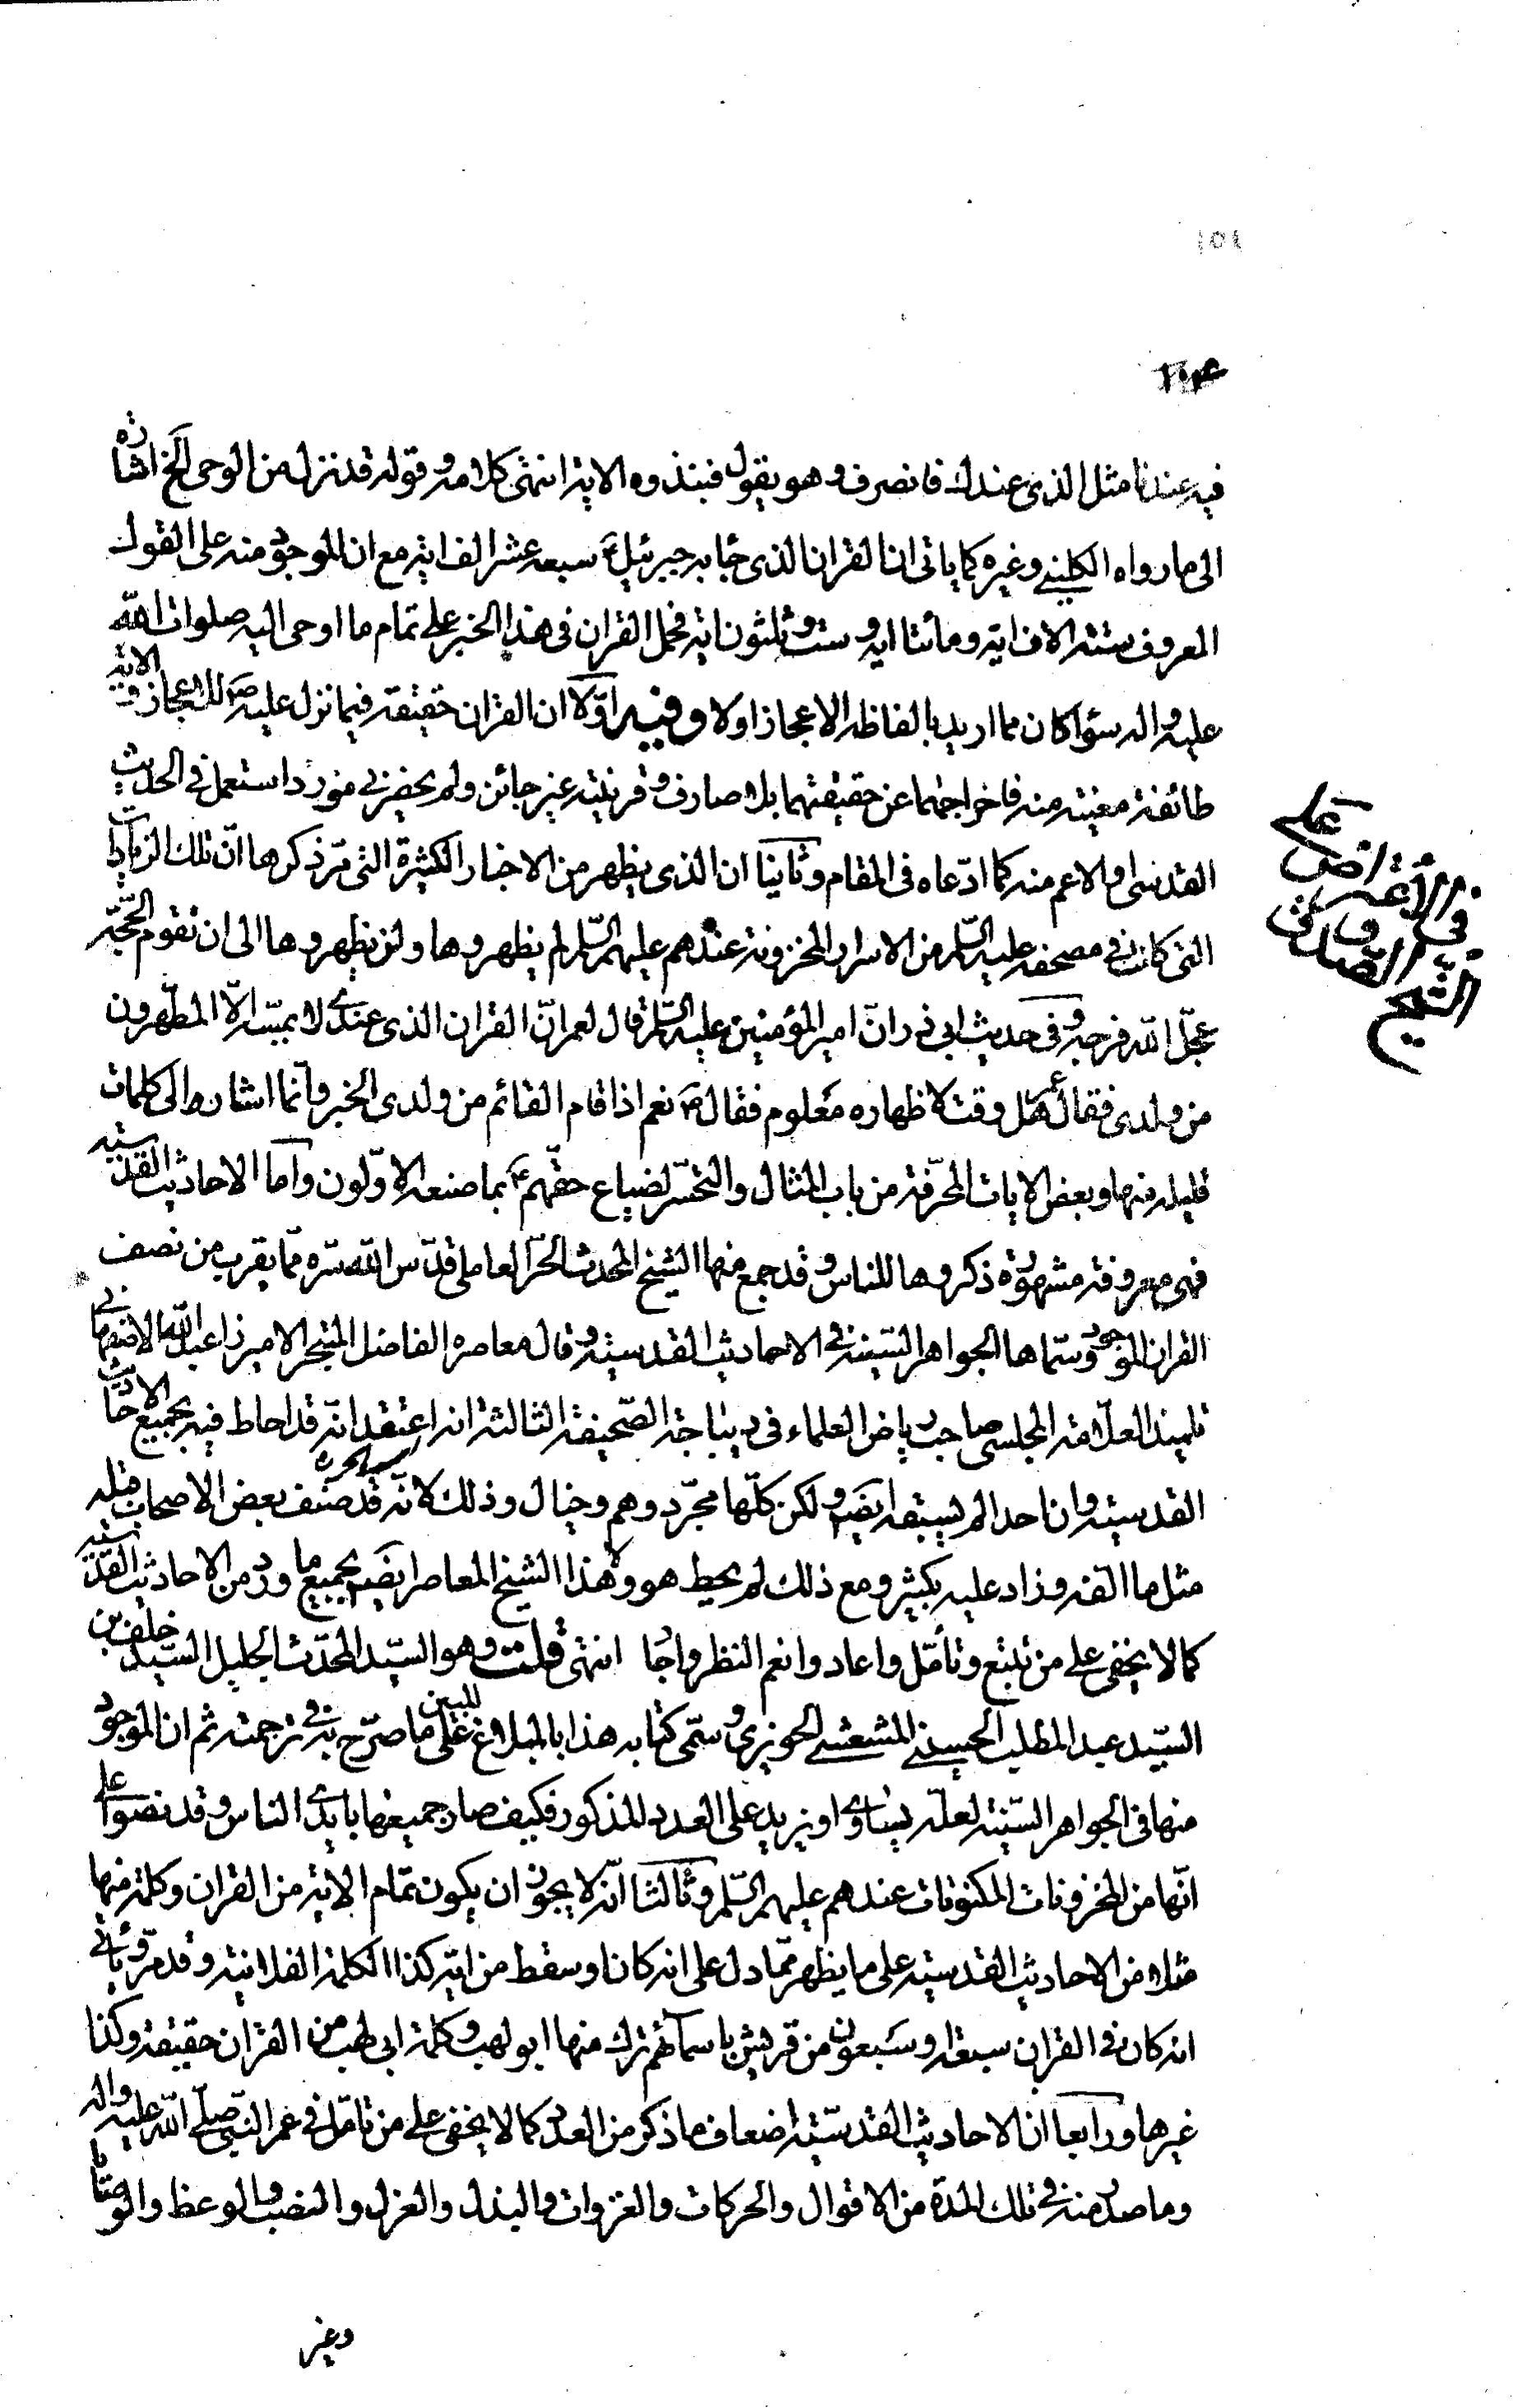 فيه عندنا مثل الذى عندك فانصرف وهو يقول فنبذوه الاية انتهى كلامه وقوله قد نزل من الوحى الخ اشارة
الى ما رواه الكلينى وغيره كما ياتى ان القران الذى جا به جبرئيل ع سبعة عشر الف اية مع ان الموجود منه على القول
المعروف ستة الاف اية ومائتا اية وست وثلثون اية فحمل القران فى هذا الخبر على تمام ما اوحى اليه صلوات الله
عليه واله سوا كان مما اريد بالفاظه الاعجاز اولا وفيه اوّلا ان القران حقيقة فيما نزل عليه ص للاعجاز والاية
طائفة معينة منه فاخراجهما عن حقيقتهما بلا صارف وقرينة غير جائز ولم يحضرنى مورد استعمل فى الحديث
القدسى او الاعم منه كما ادّعاه فى المقام وثانيا ان الذى يظهر من الاخبار الكثيرة التى مرّ ذكرها انّ تلك الزيادات
التى كانت فى مصحفه عليه السّلم من الاسرار المخزونة عندهم عليهم السّلم لم يظهروها ولن يظهروها الى ان تقوم الحجّة
عجّل الله فرجه وفى حديث ابى ذر انّ امير المؤمنين عليه السّلم قال لعمر انّ القران الذى عندى لا يمسّه الّا المطّهرون
من ولدى فقال عمر هل وقت لاظهاره معلوم فقال ع نعم اذا قام القائم من ولدى الخبر وانّما اشاروا الى كلمات
قليلة منها وبعض الايات المحرّفة من باب المثال والتحسّر لضياع حقّهم ع بما صنعه الاوّلون وامّا الاحاديث القدسيّة
فهى معروفة مشهورة ذكروها للناس وقد جمع منها الشيخ المحدث الحرّ العاملى قدّس الله سرّه ممّا يقرب من نصف
القران الموجود وسمّاها الجواهر السّنية فى الاحاديث القدسيّة وقال معاصره الفاضل المتبحر الاميرزا عبد الله الاصفهانى
تلميذ العلّامة المجلسى صاحب رياض العلماء فى ديباجة الصّحيفة الثالثة انه اعتقد انّه قد احاط فيه بجميع الاحاديث
القدسيّة وان احدا لم يسبقه ايضا ولكن كلّها مجرّد وهم وخيال وذلك لانّه قد صنّف بعض الاصحاب قبله
مثل ما الّفه وزاد عليه بكثير ومع ذلك لم يحط هو ولا هذا الشيخ المعاصر ايضا بجميع ما ورد من الاحاديث القدسيّة
كما لا يخفى على من تتبّع وتأمّل واعاد وانعم النظر واجا انتهى قلت وهو السيّد المحدّث الجليل السيّد خلف بن
السيّد عبد المطلب الحسينى المشعشعى الحويزى وسمّى كتابه هذا بالبلاغ المبين على ما صرّح به فى ترجمته ثم ان الموجود
منها فى الجواهر السّنية لعلّه يساوى او يزيد على العدد المذكور فكيف صار جميعها بايدى الناس وقد نصّوا على
انّها من المخزونات المكنونات عندهم عليهم السّلم وثالثا انّه لا يجوز ان يكون تمام الاية من القران وكلمة منها
مثلا من الاحاديث القدسيّة على ما يظهر ممّا دل على انه كان او سقط من اية كذا الكلمة الفلانية وقد مرّ وياتى
انه كان فى القران سبعة او سبعون من قريش باسمائهم ترك منها ابو لهب وكلمة ابى لهب من القران حقيقة وكذا
غيرها ورابعا ان الاحاديث القدسيّة اضعاف ما ذكر من العدد كما لا يخفى على من تامّل فى عمر النبىّ صلّى الله عليه واله
وما صدر منه فى تلك المدّة من الاقوال والحركات والغزوات والبذل والعزل والنصب والوعظ والوصايا
وغير
فى الاعتراض على
الشيخ الصدوق